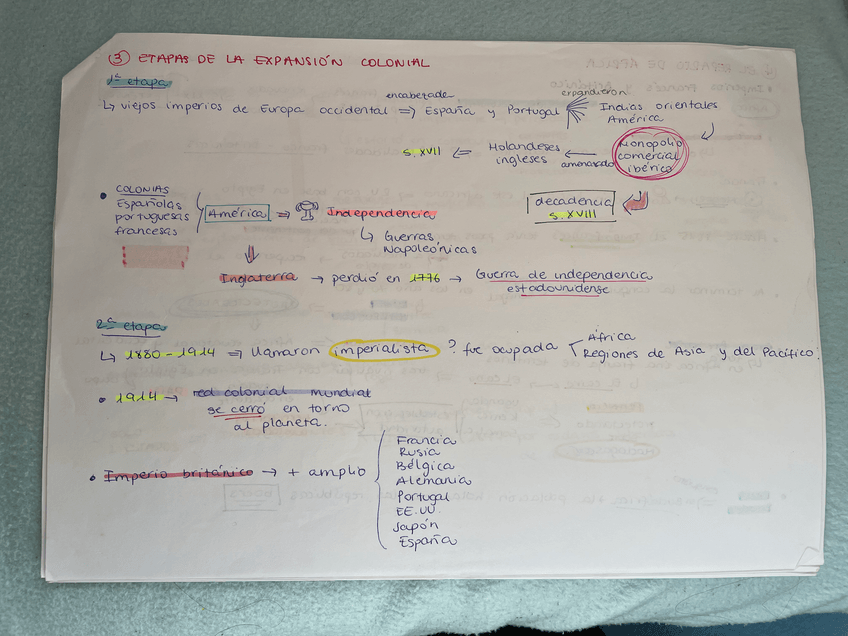 ③ ETAPAS DE LA EXPANSIÓN COLONIAL
1ª etapa
↳ viejos imperios de Europa occidental ⇒ España y Portugal
encabezado
expandieron
Indias orientales
América
Monopolio
comercial
ibérico
amenazado
Holandeses
ingleses
s. XVII
decadencia
s. XVIII
• COLONIAS
Españolas
portuguesas
francesas
América ⇒ Independencia
↳ Guerras
Napoleónicas
Inglaterra → perdió en 1776 → Guerra de independencia
estadounidense
2ª etapa
↳ 1880-1914 ⇒ llamaron imperialista ? fue ocupada
África
Regiones de Asia y del Pacífico.
• 1914 → red colonial mundial
se cerró en torno
al planeta.
• Imperio británico → + amplio
Francia
Rusia
Bélgica
Alemania
Portugal
EE.UU.
Japón
España